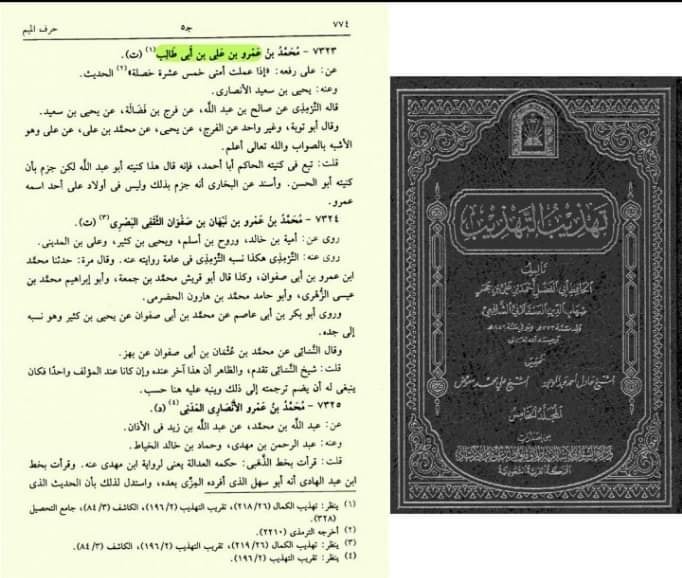 ٧٧٤
ج٥
حرف الميم
٧٣٢٣ - مُحَمَّدُ بنُ عَمْرو بن عَلى بن أَبى طَالِب(١) (ت).
عن: على رفعه: «إذا عملت أمتى خمس عشرة خصلة»(٢) الحديث.
وعنه: يحيى بن سعيد الأنصارى.
قاله التِّرمِذى عن صالح بن عبد اللَّه، عن فرج بن فَضَالَة، عن يحيى بن سعيد.
وقال أبو توبة، وغير واحد عن الفرج، عن يحيى، عن محمَّد بن على، عن على وهو
الأشبه بالصواب واللَّه تعالى أعلم.
قلت: تبع فى كنيته الحاكم أبا أحمد، فإنه قال هذا كنيته أبو عبد اللَّه لكن جزم بأن
كنيته أبو الحسن. وأسند عن البخارى أنه جزم بذلك وليس فى أولاد على أحد اسمه
عمرو.
٧٣٢٤ - مُحَمَّدُ بنُ عَمْرو بن نَبْهَان بن صَفْوَان الثَّقَفِى البَصْرِى(٣) (ت).
روى عن: أمية بن خالد، وروح بن أسلم، ويحيى بن كثير، وعلى بن المدينى.
روى عنه: التِّرْمِذى هكذا نسبه التِّرْمِذى فى عامة رواياته عنه. وقال مرة: حدثنا محمَّد
ابن عمرو بن أبى صفوان، وكذا قال أبو قريش محمَّد بن جمعة، وأبو إبراهيم محمَّد بن
عيسى الزُّهرى، وأبو حامد محمَّد بن هارون الحضرمى.
وروى أبو بكر بن أبى عاصم عن محمَّد بن أبى صفوان عن يحيى بن كثير وهو نسبه
إلى جده.
وقال النَّسَائى عن محمَّد بن عُثْمَان بن أبى صفوان عن بهز.
قلت: شيخ النَّسَائى تقدم، والظاهر أن هذا آخر عنده وإن كانا عند المؤلف واحدًا فكان
ينبغى له أن يضم ترجمته إلى ذلك وينبه عليه هنا حسب.
٧٣٢٥ - مُحَمَّدُ بنُ عَمْرو الأَنْصَارِى المَدَنِى(٤) (د).
عن: عبد اللَّه بن محمَّد، عن عبد اللَّه بن زيد فى الأذان.
وعنه: عبد الرحمن بن مهدى، وحماد بن خالد الخياط.
قلت: قرأت بخط الذَّهَبى: حكمه العدالة يعنى لرواية ابن مهدى عنه. وقرأت بخط
ابن عبد الهادى أنه أبو سهل الذى أفرده المِزِّى بعده، واستدل لذلك بأن الحديث الذى
(١) ينظر: تهذيب الكمال (٢٦/ ٢١٨)، تقريب التهذيب (٢/ ١٩٦)، الكاشف (٣/ ٨٤)، جامع التحصيل
(٣٢٨).
(٢) أخرجه الترمذى (٢٢١٠).
(٣) ينظر: تهذيب الكمال (٢٦/ ٢١٩)، تقريب التهذيب (٢/ ١٩٦)، الكاشف (٣/ ٨٤).
(٤) ينظر: تقريب التهذيب (٢/ ١٩٦).
تهذيب التهذيب
تأليف
الحافظ أبي الفضل أحمد بن علي بن حجر
شهاب الدين العسقلاني الشافعي
تحقيق
الشيخ عادل أحمد عبد الموجود
الشيخ علي محمد معوض
المجلد الخامس
المملكة العربية السعودية